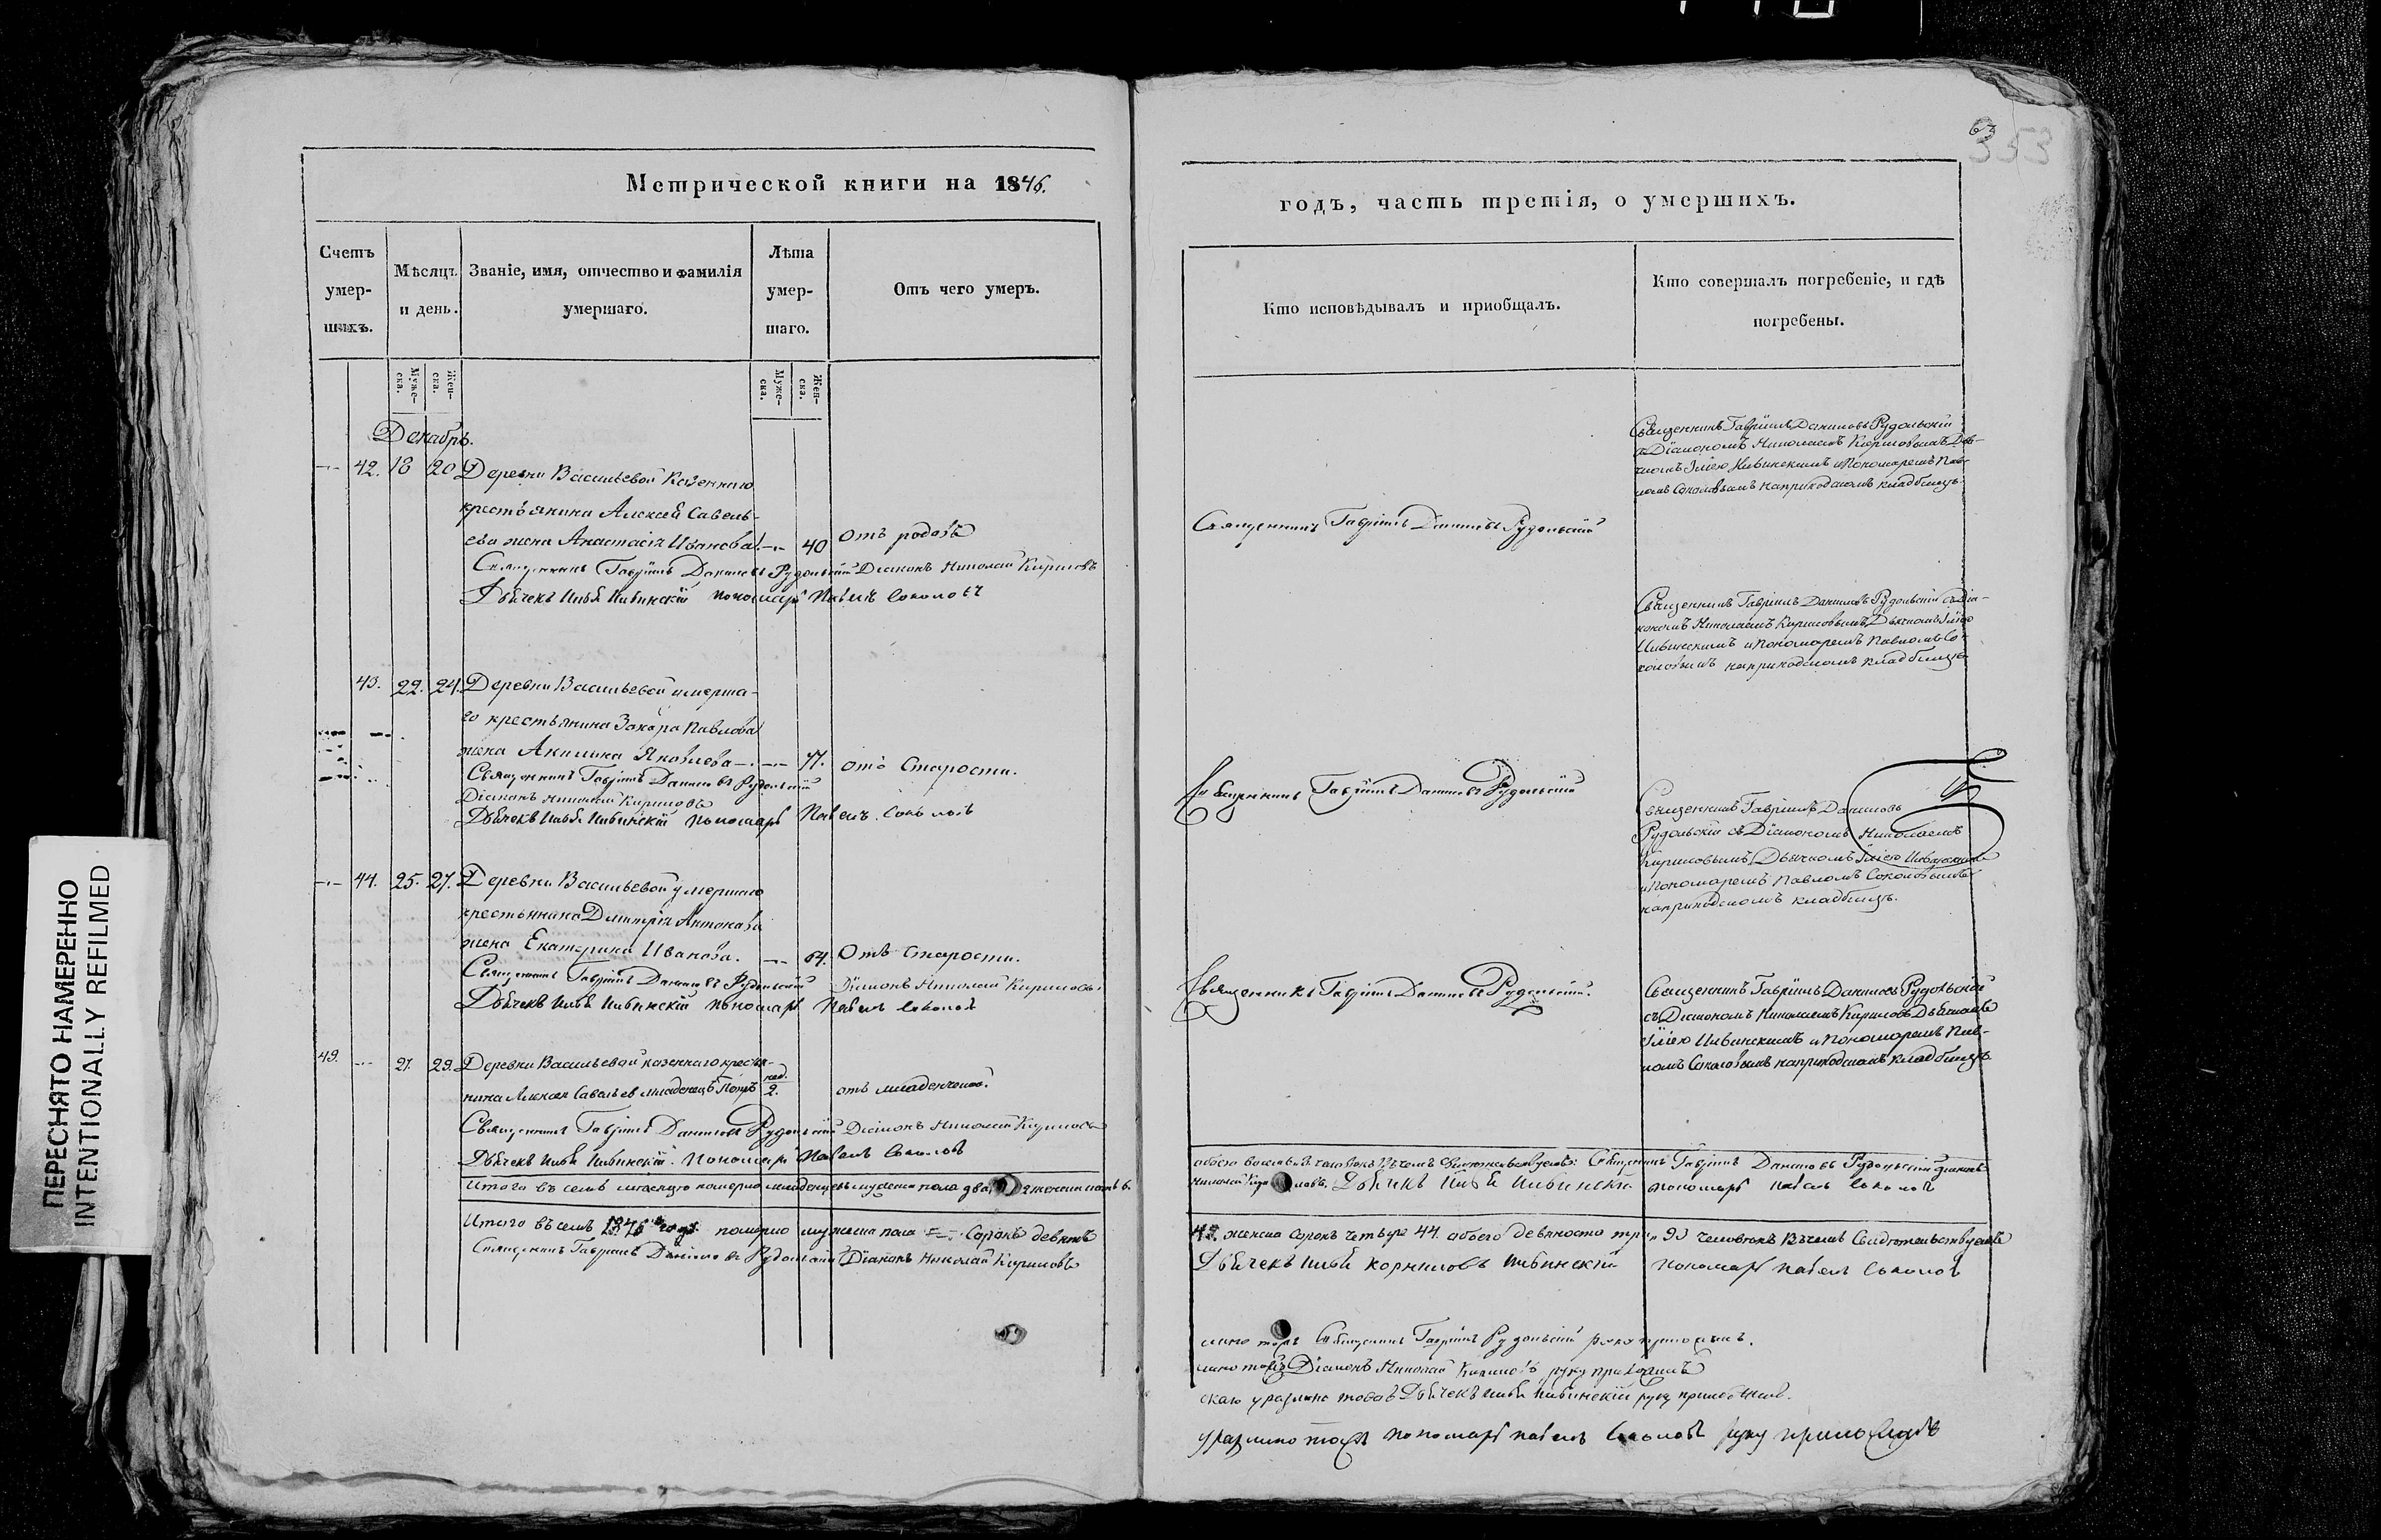 63
353
Метрической книги на 1846.
годъ, часть третія, о умершихъ.
Счетъ умер-шихъ.
Мѣсяцъ и день.
Званіе, имя, отчество и фамилія умершаго.
Лѣта умер-шаго.
Отъ чего умеръ.
Кто исповѣдывалъ и приобщалъ.
Кто совершалъ погребеніе, и гдѣ погребены.
Муже-ска.
Жен-ска.
Муже-ска.
Жен-ска.
Декабрь.
42. 18 20 Деревни Васильевой Казеннаго
крестьянина Алексѣя Савель-
ева жена Анастасія Иванова 40 Отъ родовъ
Священникъ Гавріилъ Даниловъ Рудольскій Діаконъ Николай Кириловъ
Дьячекъ Илья Ивинскій пономарь Павелъ Соколовъ
Священникъ Гавріилъ Даниловъ Рудольскій
Священникъ Гавріилъ Даниловъ Рудольскій
съ Діакономъ Николаемъ Кириловымъ Дья-
чкомъ Ильею Ивинскимъ и Пономаремъ Пав-
ломъ Соколовымъ на приходскомъ кладбищѣ.
43. 22. 24. Деревни Васильевой умерша-
го крестьянина Захара Павлова
жена Акилина Яковлева 77. отъ Старости.
Священникъ Гавріилъ Даниловъ Рудольскій
Діаконъ Николай Кириловъ
Дьячекъ Илья Ивинскій пономарь Павелъ Соколовъ
Священникъ Гавріилъ Даниловъ Рудольскій
Священникъ Гавріилъ Даниловъ Рудольскій съ Діа-
кономъ Николаемъ Кириловымъ, Дьячкомъ Ильею
Ивинскимъ и Пономаремъ Павломъ Со-
коловымъ на приходскомъ кладбищѣ
44. 25. 27. Деревни Васильевой умершаго
крестьянина Димитрія Антонова
жена Екатерина Иванова. 64. Отъ Старости.
Священникъ Гавріилъ Даниловъ Рудольскій Діаконъ Николай Кириловъ
Дьячекъ Илья Ивинскій пономарь Павелъ Соколовъ
Священникъ Гавріилъ Даниловъ Рудольскій.
Священникъ Гавріилъ Даниловъ
Рудольскій съ Діакономъ Николаемъ
Кириловымъ, Дьячкомъ Ильею Ивинскимъ
и Пономаремъ Павломъ Соколовымъ
на приходскомъ кладбищѣ.
49. 27. 29. Деревни Васильевой казеннаго крестья-
нина Алексѣя Савельева младенецъ Петръ нед. 2. отъ младенческой.
Священникъ Гавріилъ Даниловъ Рудольскій Діаконъ Николай Кириловъ
Дьячекъ Илья Ивинскій. Пономарь Павелъ Соколовъ
Священникъ Гавріилъ Даниловъ Рудольскій
съ Діакономъ Николаемъ Кириловъ Дьячкомъ
Ильею Ивинскимъ и Пономаремъ Пав-
ломъ Соколовымъ на приходскомъ кладбищѣ
Итого въ семъ мѣсяцѣ померло младенцевъ мужеска пола два
Священникъ Гавріилъ Даниловъ Рудольскій Діаконъ
Николай Дьячекъ Илья Ивинскій пономарь Павелъ Соколовъ
Итого въ семъ 1846 годѣ померло мужеска пола Сорокъ девять
49. женска Сорокъ четыре 44. обоего девяносто три 93 человѣкъ Въ чемъ Свидѣтельствуемъ
Священникъ Гавріилъ Даниловъ Рудольскій Діаконъ Николай Кириловъ
Дьячекъ Илья Корниловъ Ивинскій пономарь Павелъ Соколовъ
Священникъ Гавріилъ Рудольскій руку приложилъ.
Діаконъ Николай Кириловъ руку приложилъ
Дьячекъ Илья Ивинскій руку приложилъ.
пономарь Павелъ Соколовъ руку приложилъ
ПЕРЕСНЯТО НАМЕРЕННО
INTENTIONALLY REFILMED